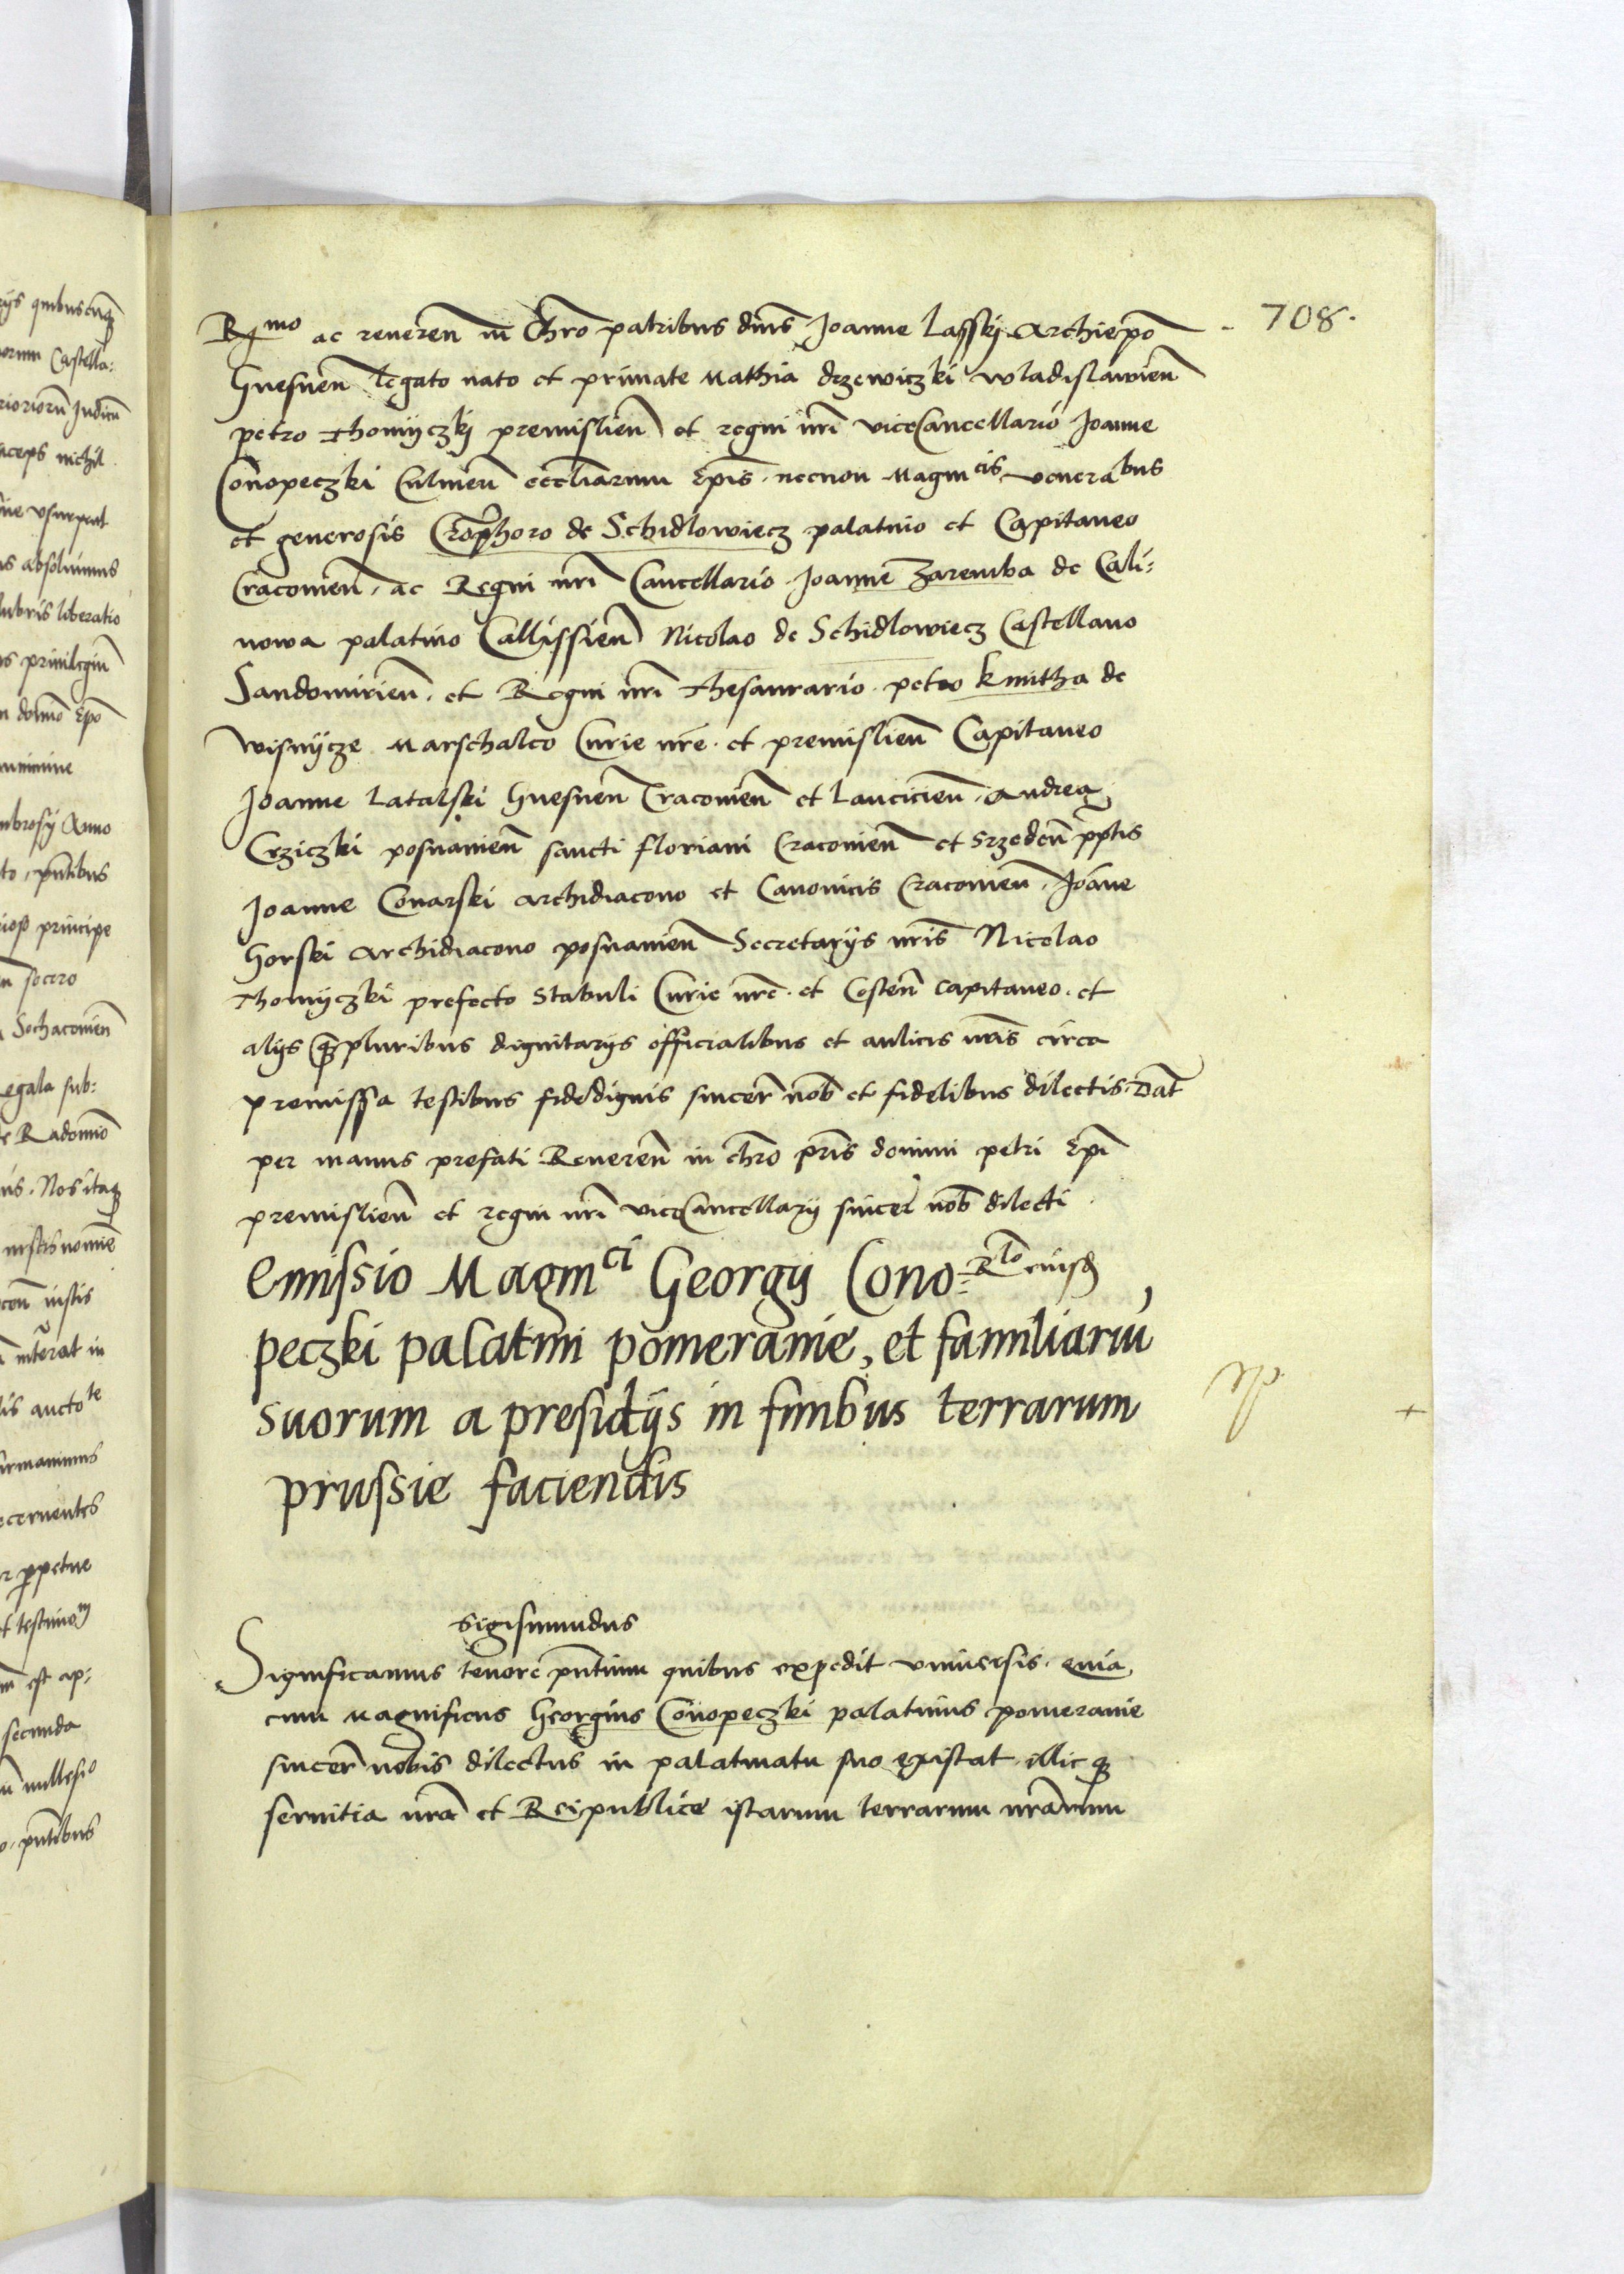 708.
R<sup>mo</sup> ac reveren in Chro patribus dnis Joanne Lasskÿ Archiepo
Gnesnen legato nato et primate Mathia drzewiczki wladislawien
petro Thomÿczkj premislien et regni nri viceCancellario Joanne
Conopeczki Culmen eccliarum Epis. necnon Magni<sup>cis</sup> venera<sup>bus</sup>
et generosis Cropħoro de Schidlowiecz palatino et Capitaneo
Cracovien. ac Regni nri Cancellario. Joanne Zaremba de Cali:
nowa palatino Callissien Nicolao de Schidlowiecz Castellano
Sandomirien. et Regni nri Thesaurario. petro kmitha de
wisnÿcze Marschalco Curie nre. et premislien Capitaneo
Joanne Latalski Gnesnen Cracovien et Lancicien. Andrea
Crziczki posnanien sancti floriani Cracovien et Srzeden pptis
Joanne Conarski Archidiacono et Canonicis Cracovien. Joanne
Gorski Archidiacono posnanien Secretarÿs nris Nicolao
Thomÿczki prefecto Stabuli Curie nre. et Costen Capitaneo. et
alÿs qpluribus dignitarÿs officialibus et aulicis nris circa
premissa testibus fidedignis sincer nob et fidelibus dilectis. Dat
per manus prefati Reveren in chro pris domini petri Epi
premislien et regni nri viceCancellarÿ sincer nob dilecti
Emissio Magni<sup>ci</sup> Georgÿ Cono=
R<sup>lo</sup> eiusd
peczki palatini pomeranie, et familiariu
suorum a presidÿs in finibus terrarum
prussie faciendis
Sigismundus
Significamus tenore pntium quibus expedit universis. quia
cum Magnificus Georgius Conopeczki palatinus pomeranie
sincer nobis dilectus in palatinatu suo existat illicq
servitia nra et Reipublice istarum terrarum nrarum